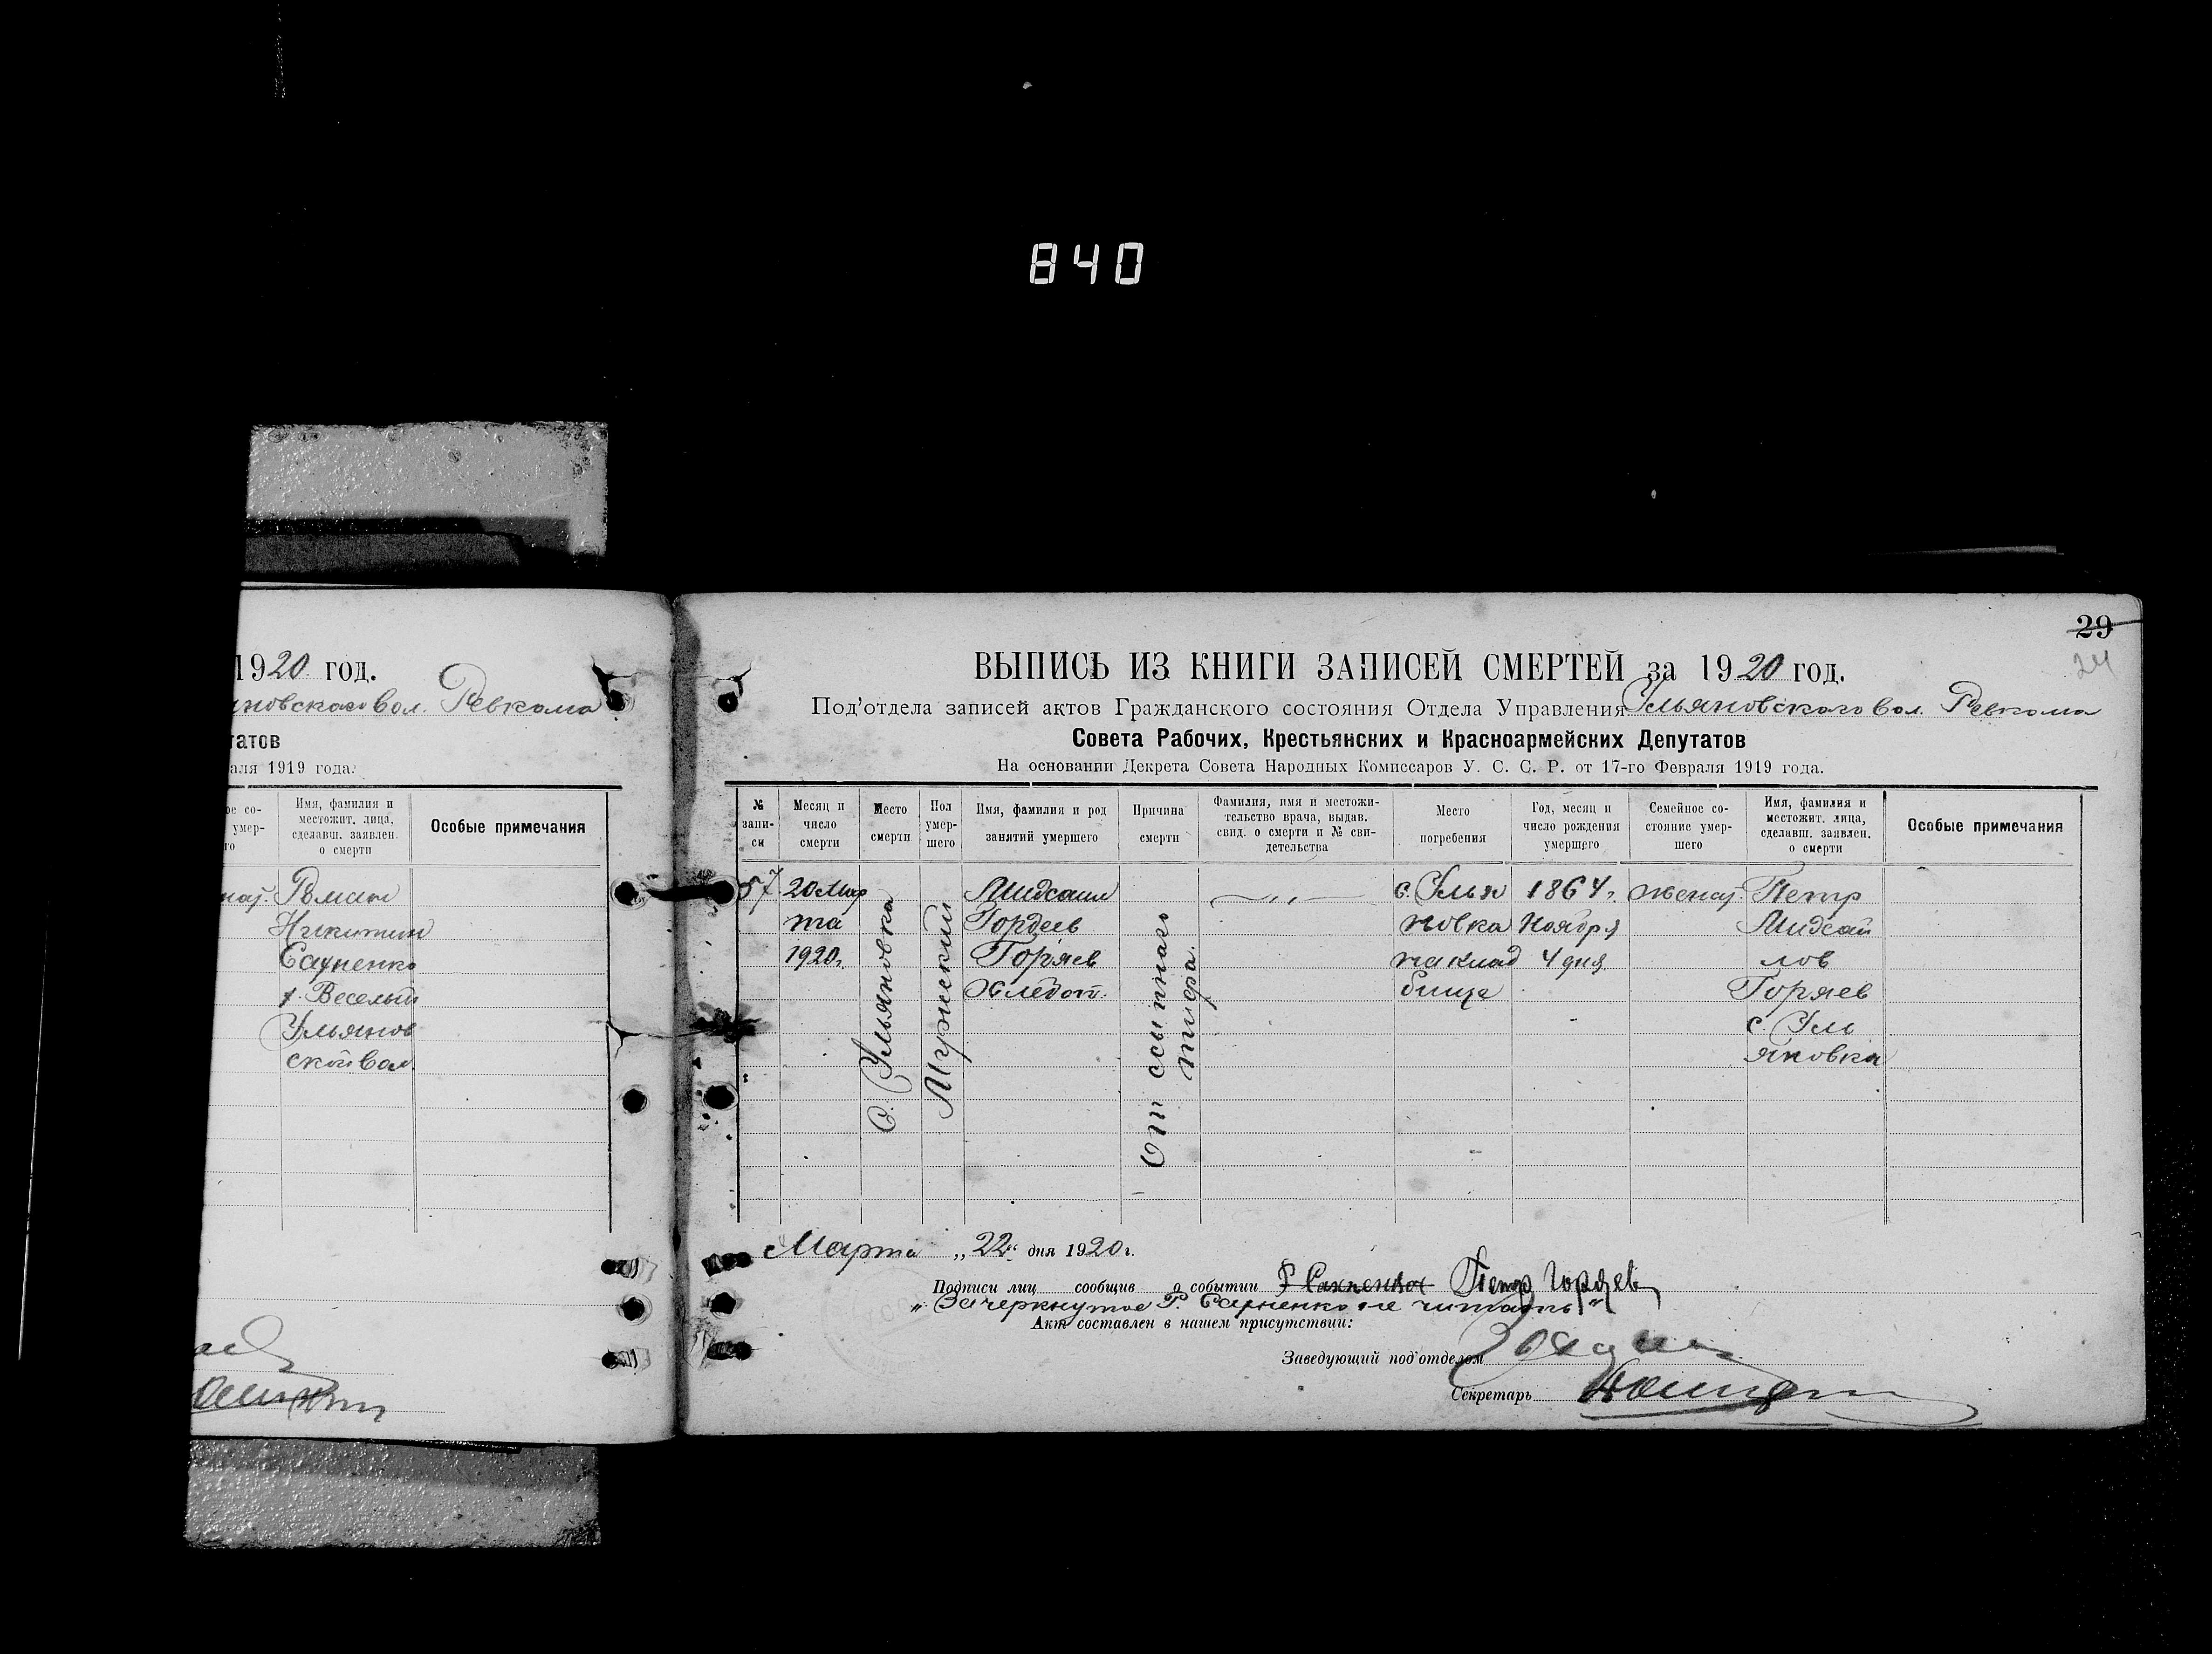 840
1920 год.
новскаго вол. Ревкома
татов
аля 1919 года.
ое со-
умер-
го
Имя, фамилия и
местожит. лица,
сделавш. заявлен.
о смерти
Особые примечания
нат. Роман
Никитин
Сахненко
х. Веселый
Ульянов
ской вол.
29
24
ВЫПИСЬ ИЗ КНИГИ ЗАПИСЕЙ СМЕРТЕЙ за 1920 год.
Под'отдела записей актов Гражданского состояния Отдела Управления Ульяновскаго вол. Ревкома
Совета Рабочих, Крестьянских и Красноармейских Депутатов
На основании Декрета Совета Народных Комиссаров У. С. С. Р. от 17-го Февраля 1919 года.
№
запи-
си
Месяц и
число
смерти
Место
смерти
Пол
умер-
шего
Имя, фамилия и род
занятий умершего
Причина
смерти
Фамилия, имя и местожи-
тельство врача, выдав.
свид. о смерти и № сви-
детельства
Место
погребения
Год, месяц и
число рождения
умершего
Семейное со-
стояние умер-
шего
Имя, фамилия и
местожит. лица,
сделавш. заявлен.
о смерти
Особые примечания
57
20 Мар
та
1920г.
с. Ульяновка
Мужский
Михаил
Гордеев
Горяев
Хлебоп.
от сыпнаго
тифа.
—„—
с. Улья
новка
на клад
бище
1864г.
Ноября
4 дня
женат.
Петр
Михай
лов
Горяев
с. Уль
яновка
Марта „22“ дня 1920г.
Подписи лиц сообщив о событии Р. Сахненко Петр Горяев
„Зачеркнутое Р. Сахненко не читать“
Акт составлен в нашем присутствии:
Заведующий под'отделом
Секретарь